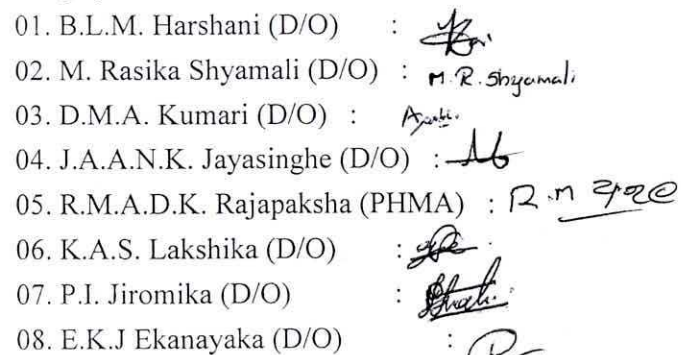 01. B.L.M. Harshani (D/O) :
02. M. Rasika Shyamali (D/O) : M.R. Shyamali
03. D.M.A. Kumari (D/O) :
04. J.A.A.N.K. Jayasinghe (D/O) :
05. R.M.A.D.K. Rajapaksha (PHMA) : R.M
06. K.A.S. Lakshika (D/O) :
07. P.I. Jiromika (D/O) :
08. E.K.J Ekanayaka (D/O) :